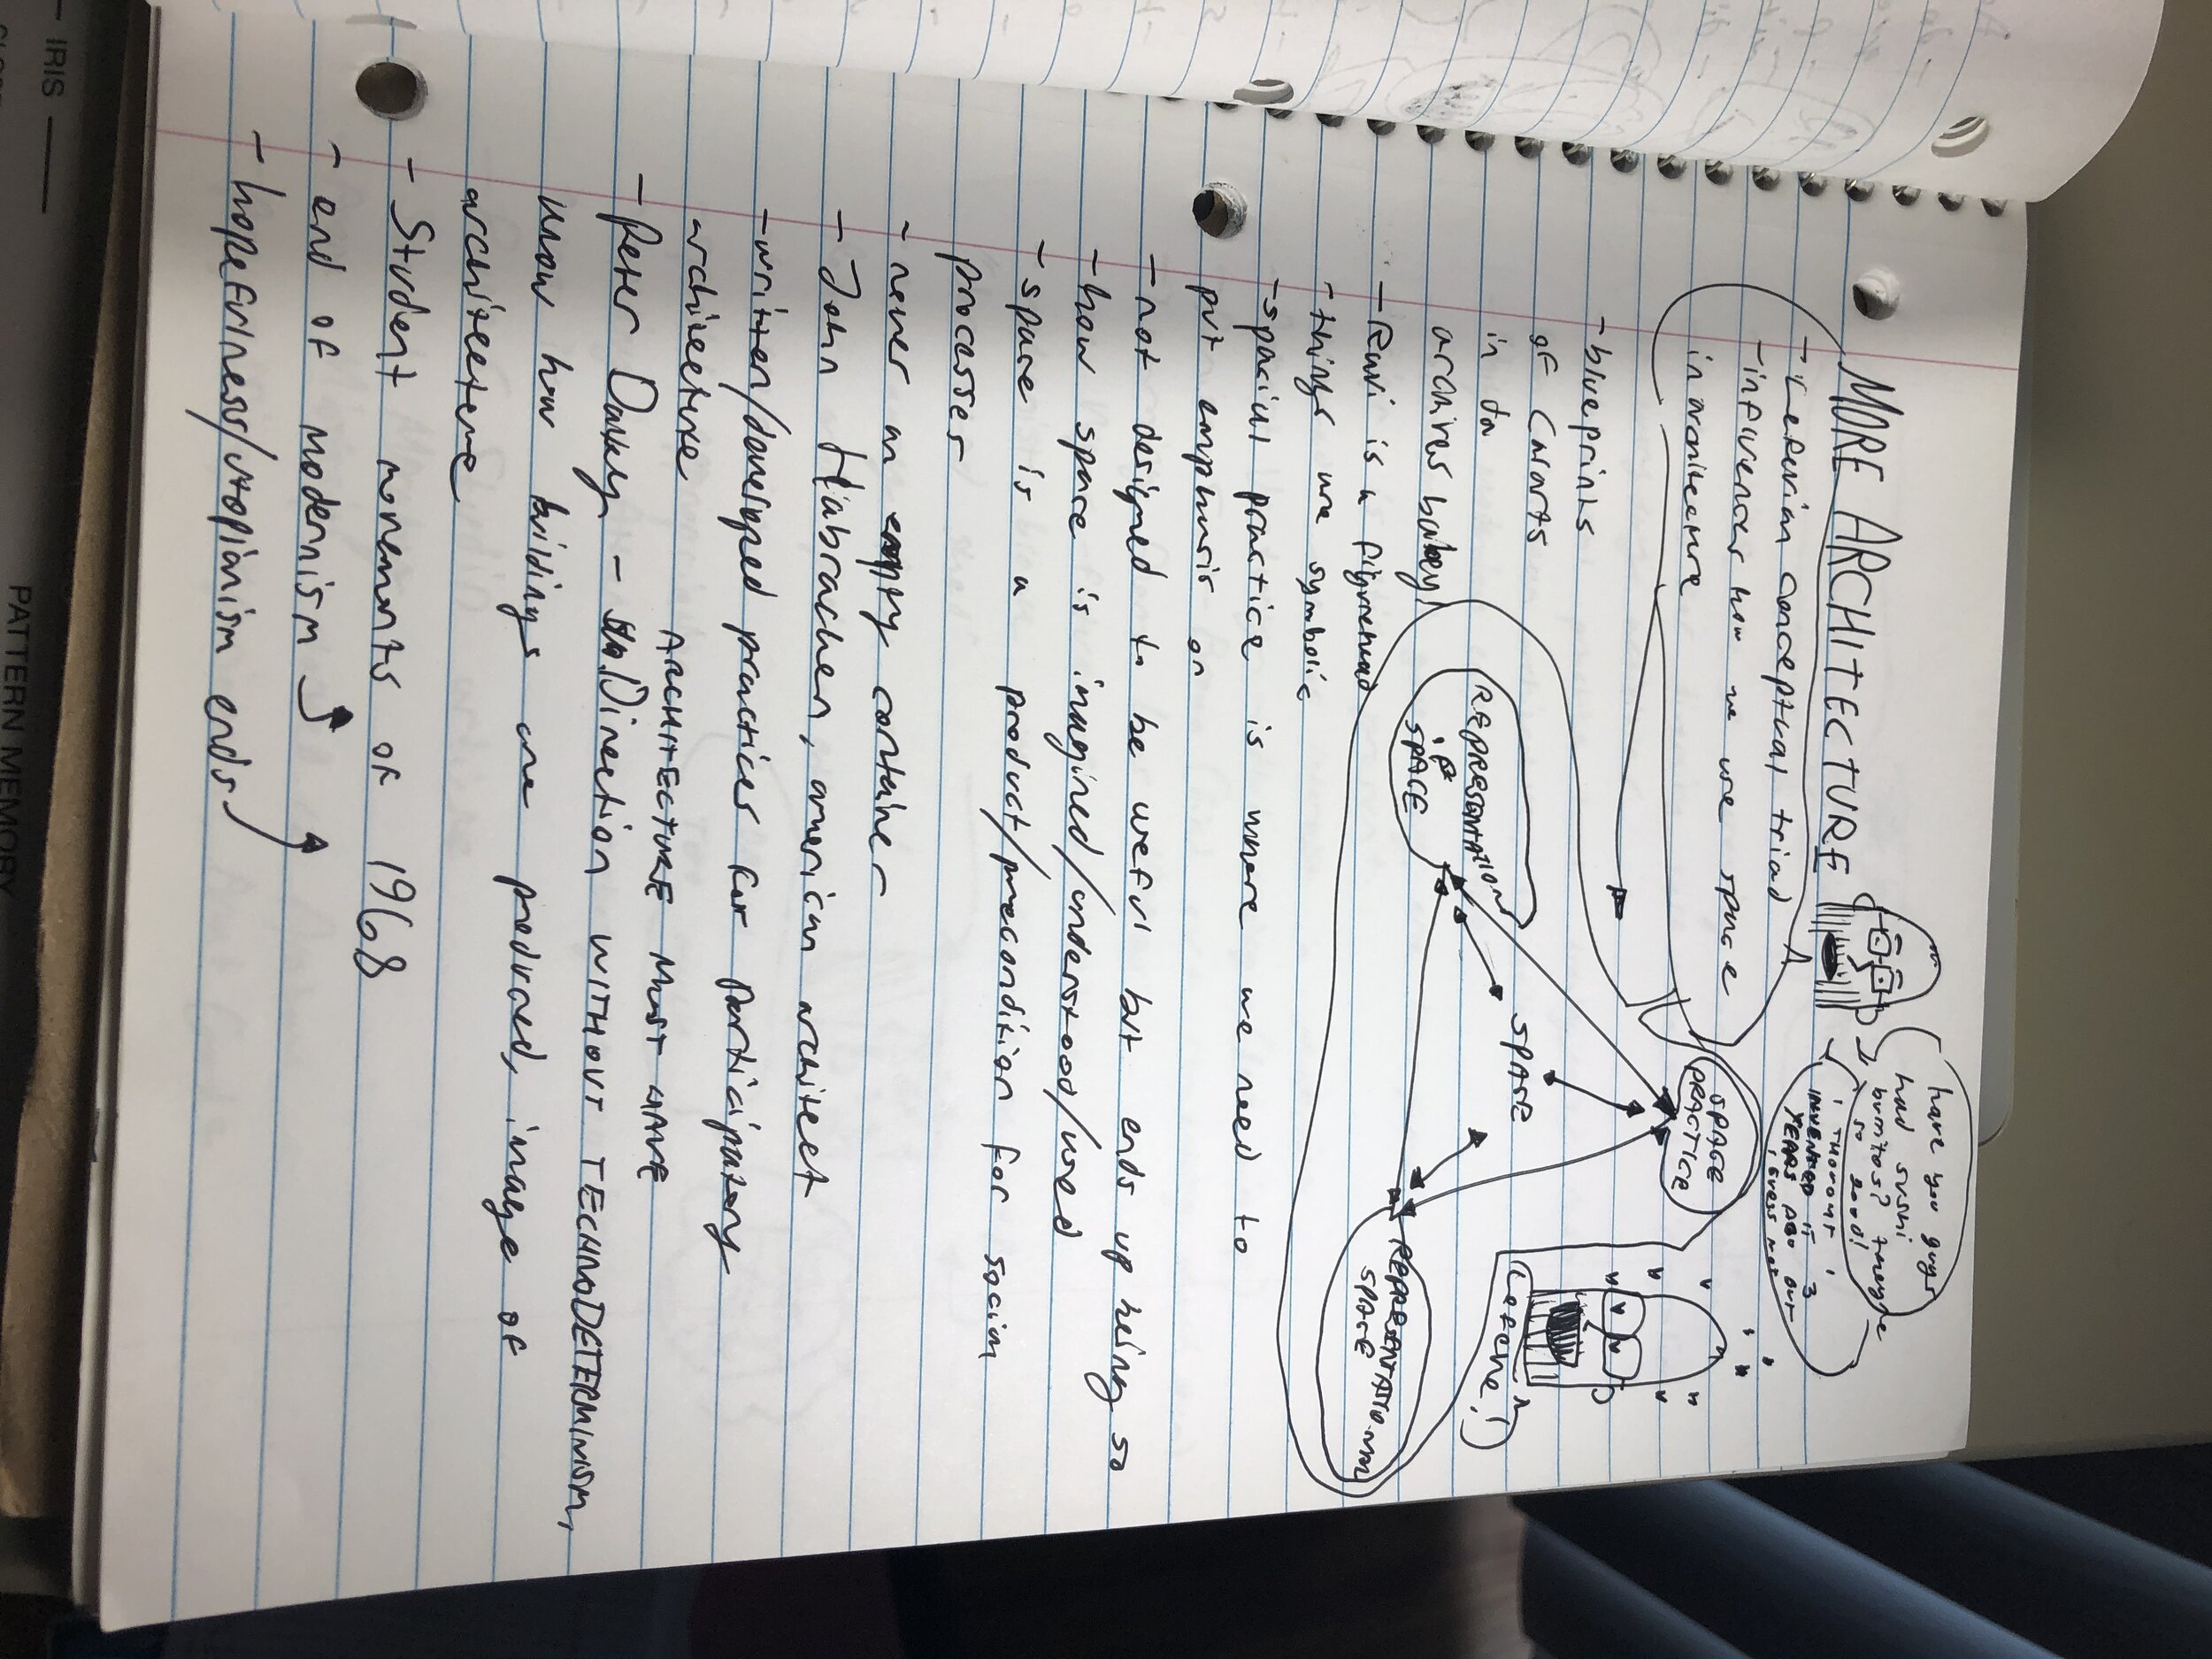 MORE ARCHITECTURE
have you guys
had sushi
burritos? they're
so good!
i THOUGHT i
INVENTED IT 3
YEARS AGO BUT
- Lefevrian Conceptual triad
- influences how we use space
in architecture
- blueprints
of Charts
in
archives
SPACE
PRACTICE
SPACE
REPRESENTATION
OF
SPACE
REPRESENTATIONAL
SPACE
Lefevre!
- Ravi is a
- things are symbolic
- spacial practice is where we need to
put emphasis on
- not designed to be useful but ends up being so
- how space is imagined/understood/used
- space is a product/precondition for social
processes
- never an empty container
- John Habracken, american architect
- written/developed practices for participatory
architecture
ARCHITECTURE MUST HAVE
- Peter - Direction WITHOUT TECHNODETERMINISM,
know how buildings are produced, image of
architecture
- Student movements of 1968
- end of modernism
- hopefulness/utopianism ends
IRIS
PATTERN MEMORY